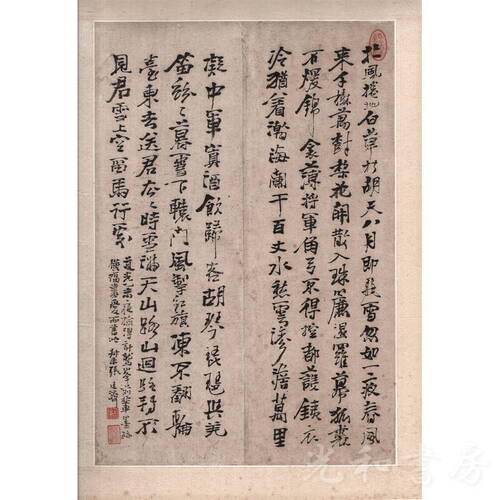 北風捲地白草折胡天八月即飛雪忽如一夜春風
來千樹萬樹梨花開散入珠簾濕羅幕狐裘
不煖錦衾薄將軍角弓不得控都護鐵衣
冷猶着瀚海闌干百丈冰愁雲慘澹萬里
凝中軍置酒飲歸客胡琴琵琶與羌
笛紛々暮雪下轅門風掣紅旗凍不翻輪
臺東去送君去々時雪滿天山路山迴路轉不
見君雪上空留馬行處
叔未張廷濟
光和書房